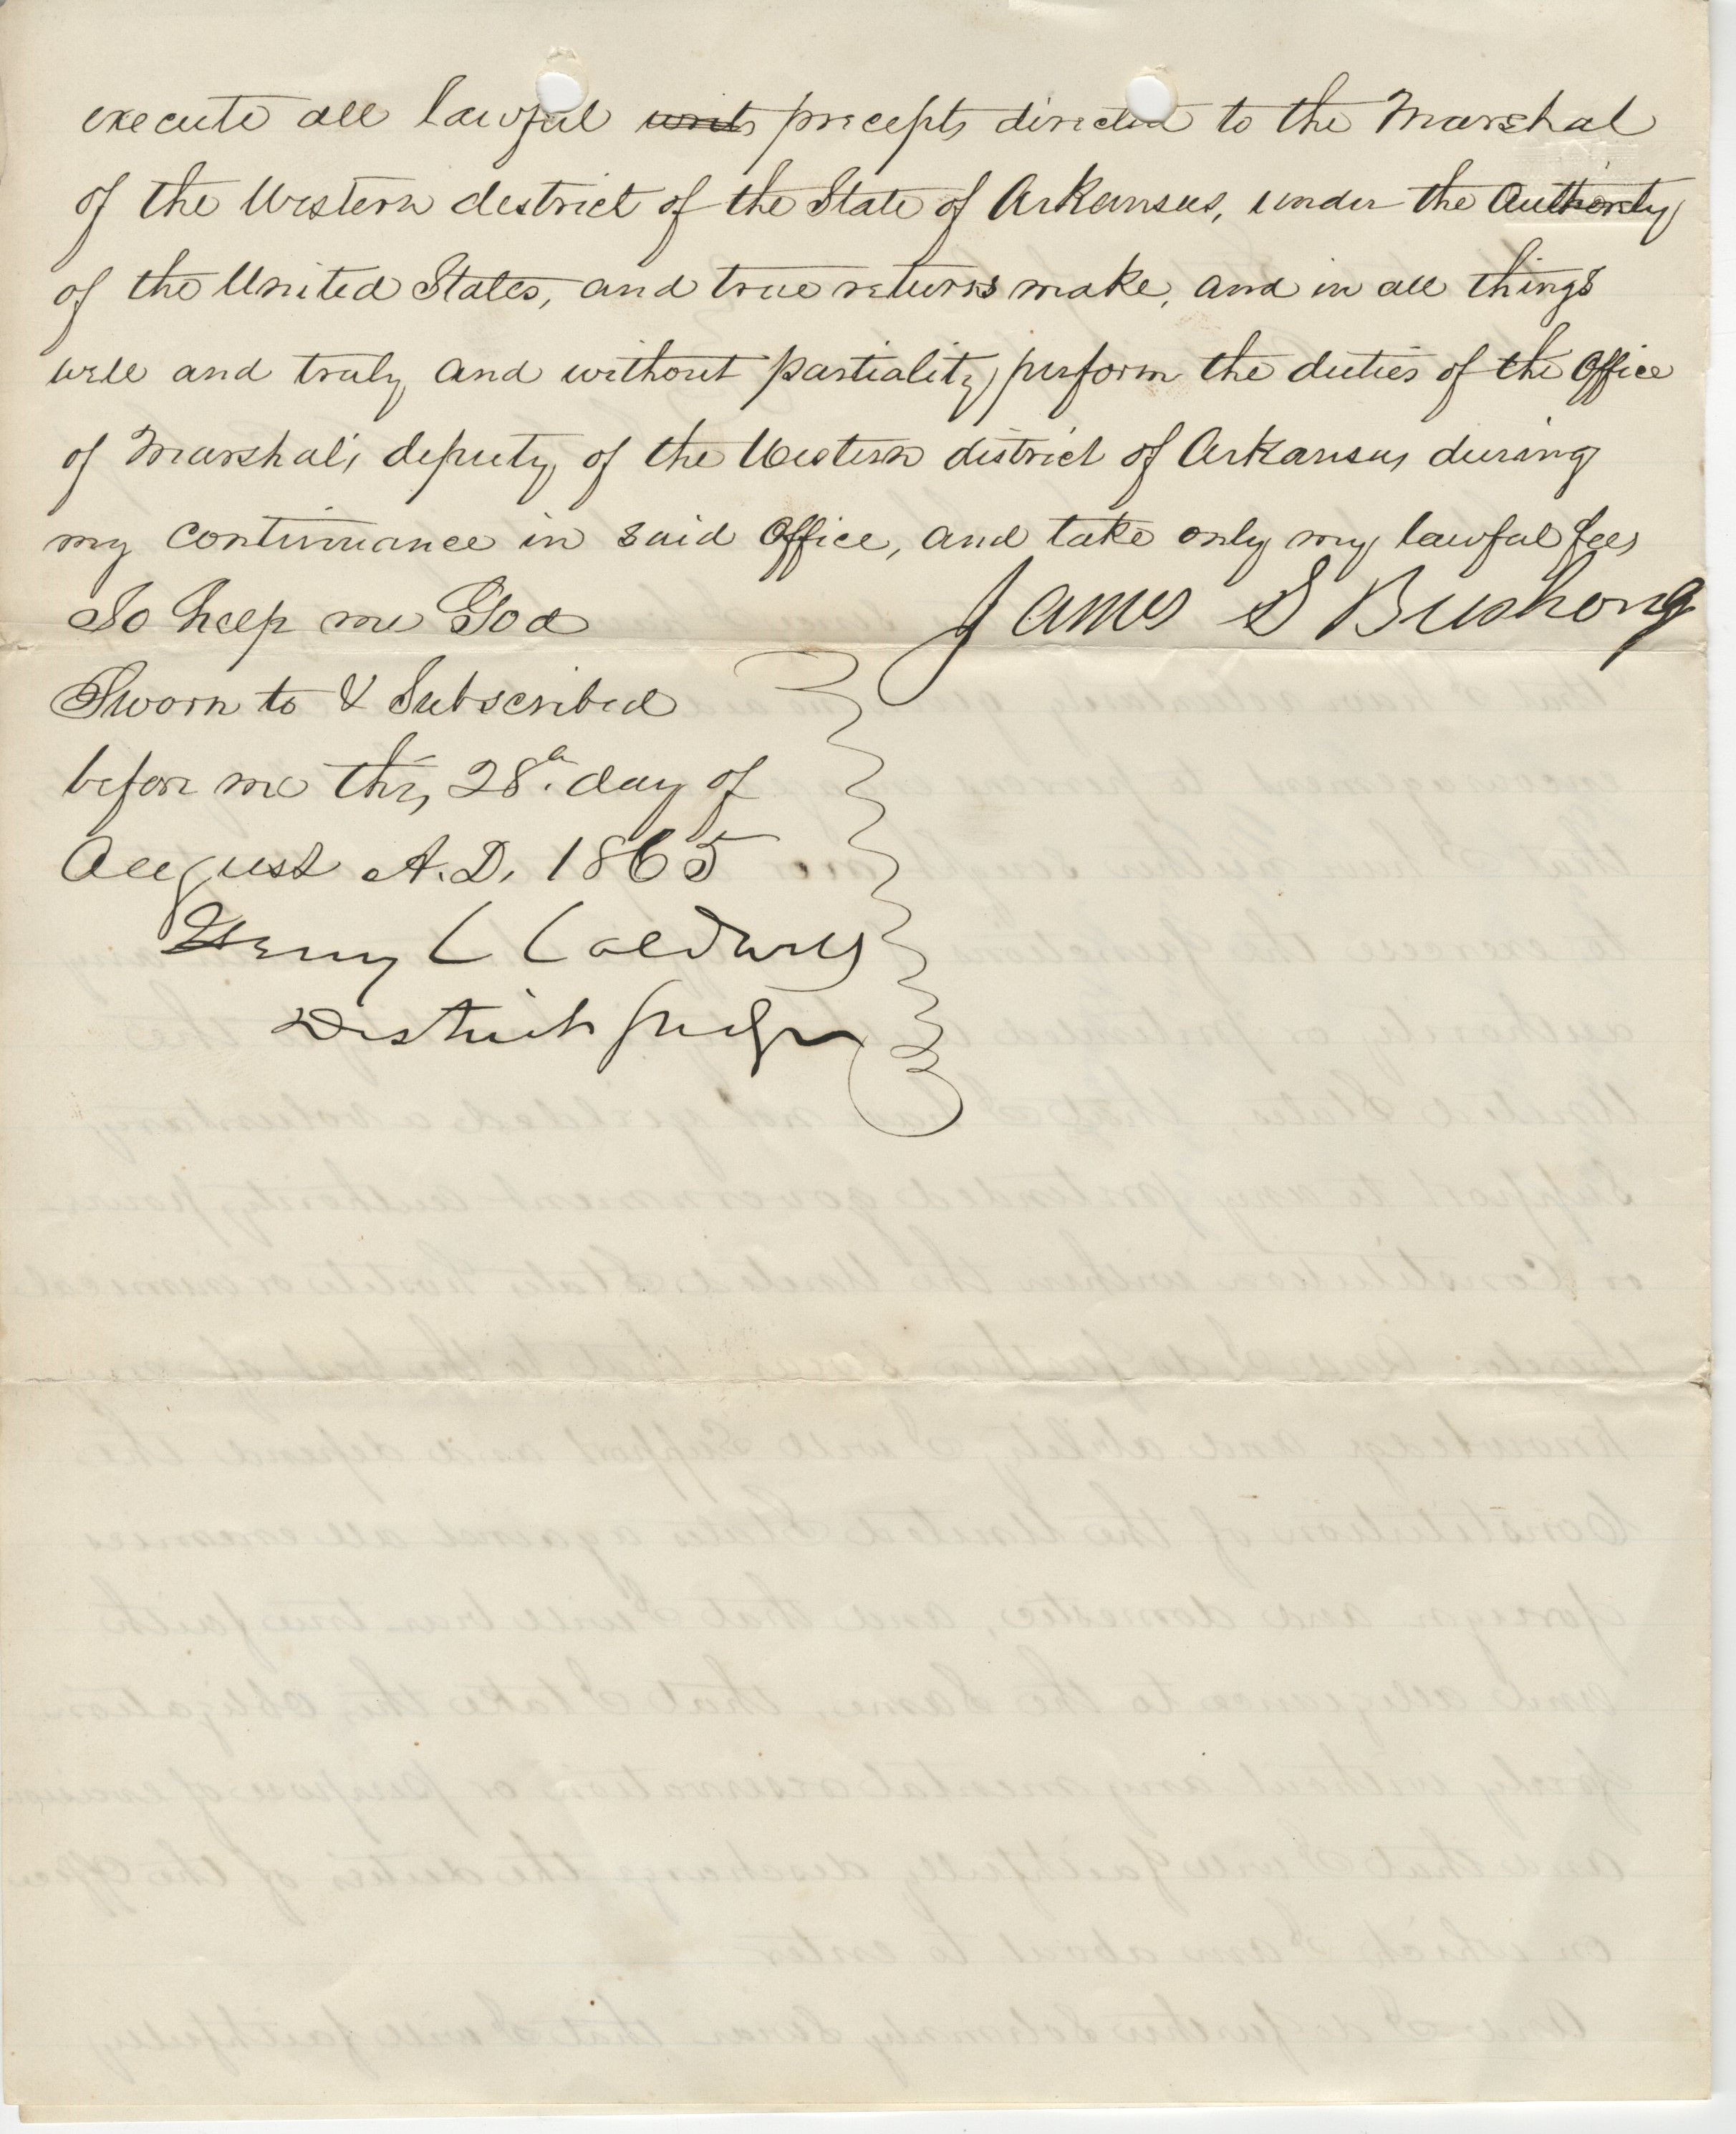 execute all lawful writs precepts directed to the Marshal
of the Western district of the State of Arkansas, under the Authority
of the United States, and true returns make, and in all things
well and truly and without partiality perform the duties of the Office
of Marshal's deputy of the Western district of Arkansas during
my continuance in said Office, and take only my lawful fees
So help me God James S Bushong
Sworn to & Subscribed
before me this 28th day of
August A.D. 1865
Henry C Caldwell
District Judge